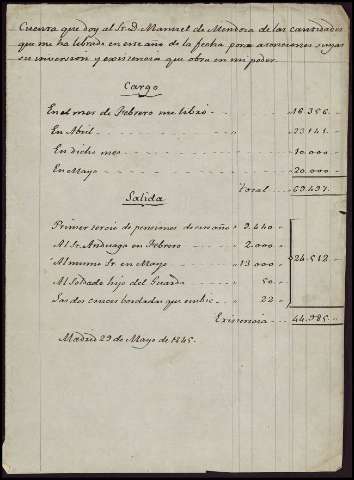 Cuenta que doy al Sr. D. Manuel de Mendoza de las cantidades
que me ha librado en este año de la fecha para atenciones suyas
su inversion y existencia que obra en mi poder.
Cargo
En el mes de Febrero me libró 16.356.
En Abril 23.141.
En dicho mes 10.000
En Mayo 20.000
Total 69.497.
Salida
Primer tercio de pensiones de este año 9.440
Al Sr. Anduaga en Febrero 2.000
Al mismo Sr. en Mayo 13.000 24.512
Al Soldado hijo del Guarda 50
Las dos cruces bordadas que embié 22
Existencia 44.985
Madrid 29 de Mayo de 1845.